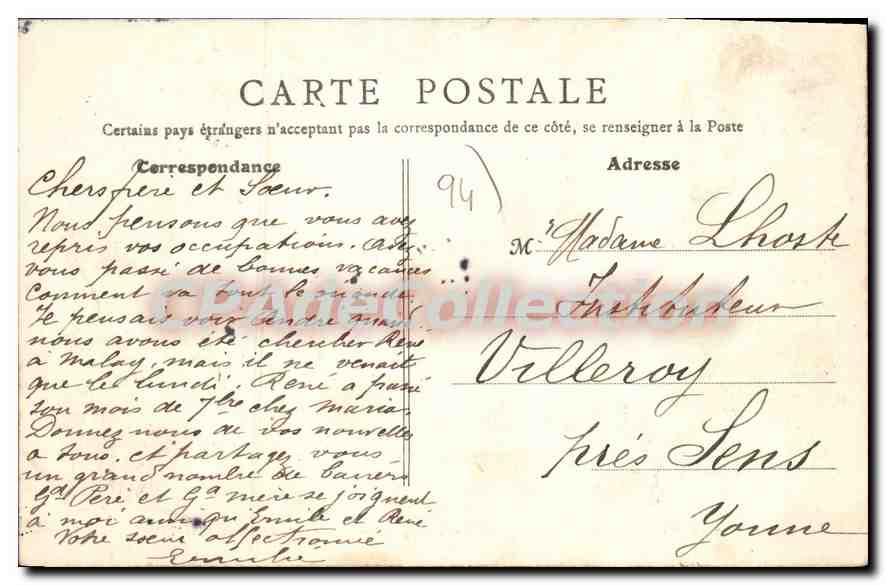 CARTE POSTALE
Certains pays étrangers n'acceptant pas la correspondance de ce côté, se renseigner à la Poste
Correspondance
Chers frère et Sœur.
Nous pensons que vous avez
repris vos occupations. Avez
vous passé de bonnes vacances
Comment va tout le monde
Je pensais voir André quand
nous avons été chercher René
à Malay, mais il ne venait
que le lundi. René a passé
son mois de 7bre chez Maria
Donnez nous de vos nouvelles
a tous. et partagez vous
un grand nombre de baisers
Gd Père et Gd mère se joignent
à moi ainsi qu'Emile et René
Votre sœur affectionnée
94)
Adresse
M r Madame Lhoste
Instituteur
Villeroy
près Sens
Yonne
CPArteCollection